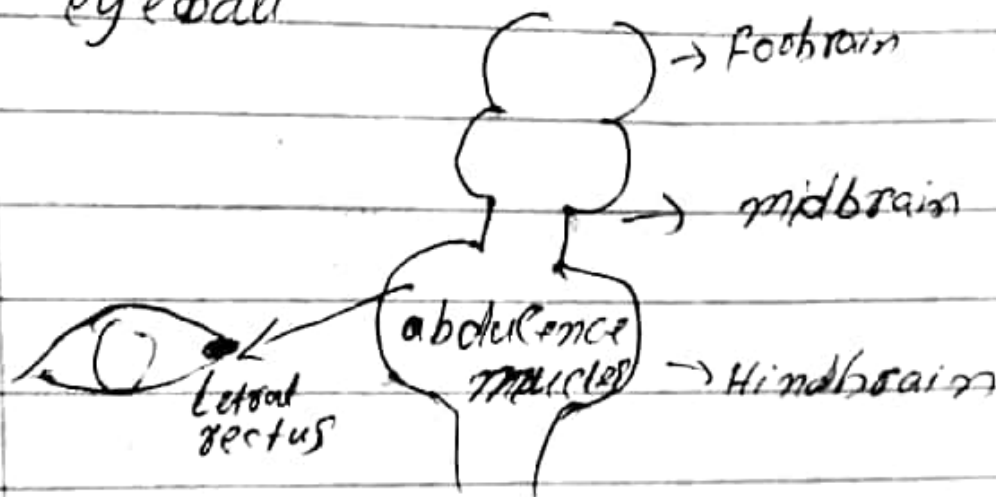 eyeball
→ Foohrain
→ midbrain
abdulence
mucles
→ Hindbrain
Letral
rectus